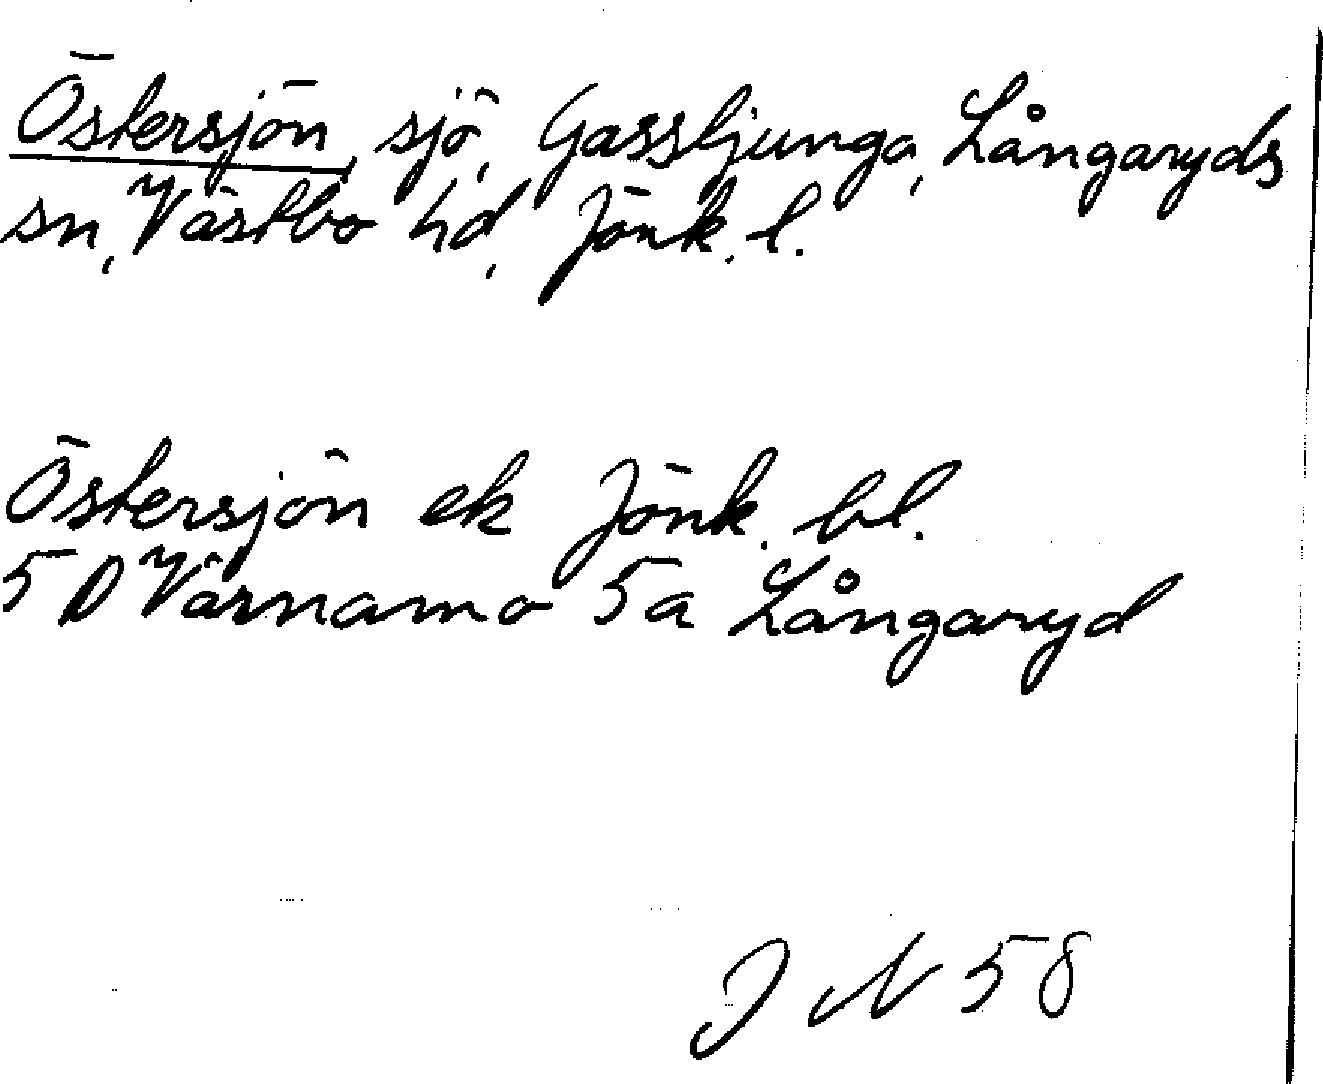 Östersjön, sjö, Gassljunga, Långaryds
sn, Västbo hd, Jönk. l.
Östersjön ek Jönk. bl.
5 D Värnamo 5a Långaryd
J N 58